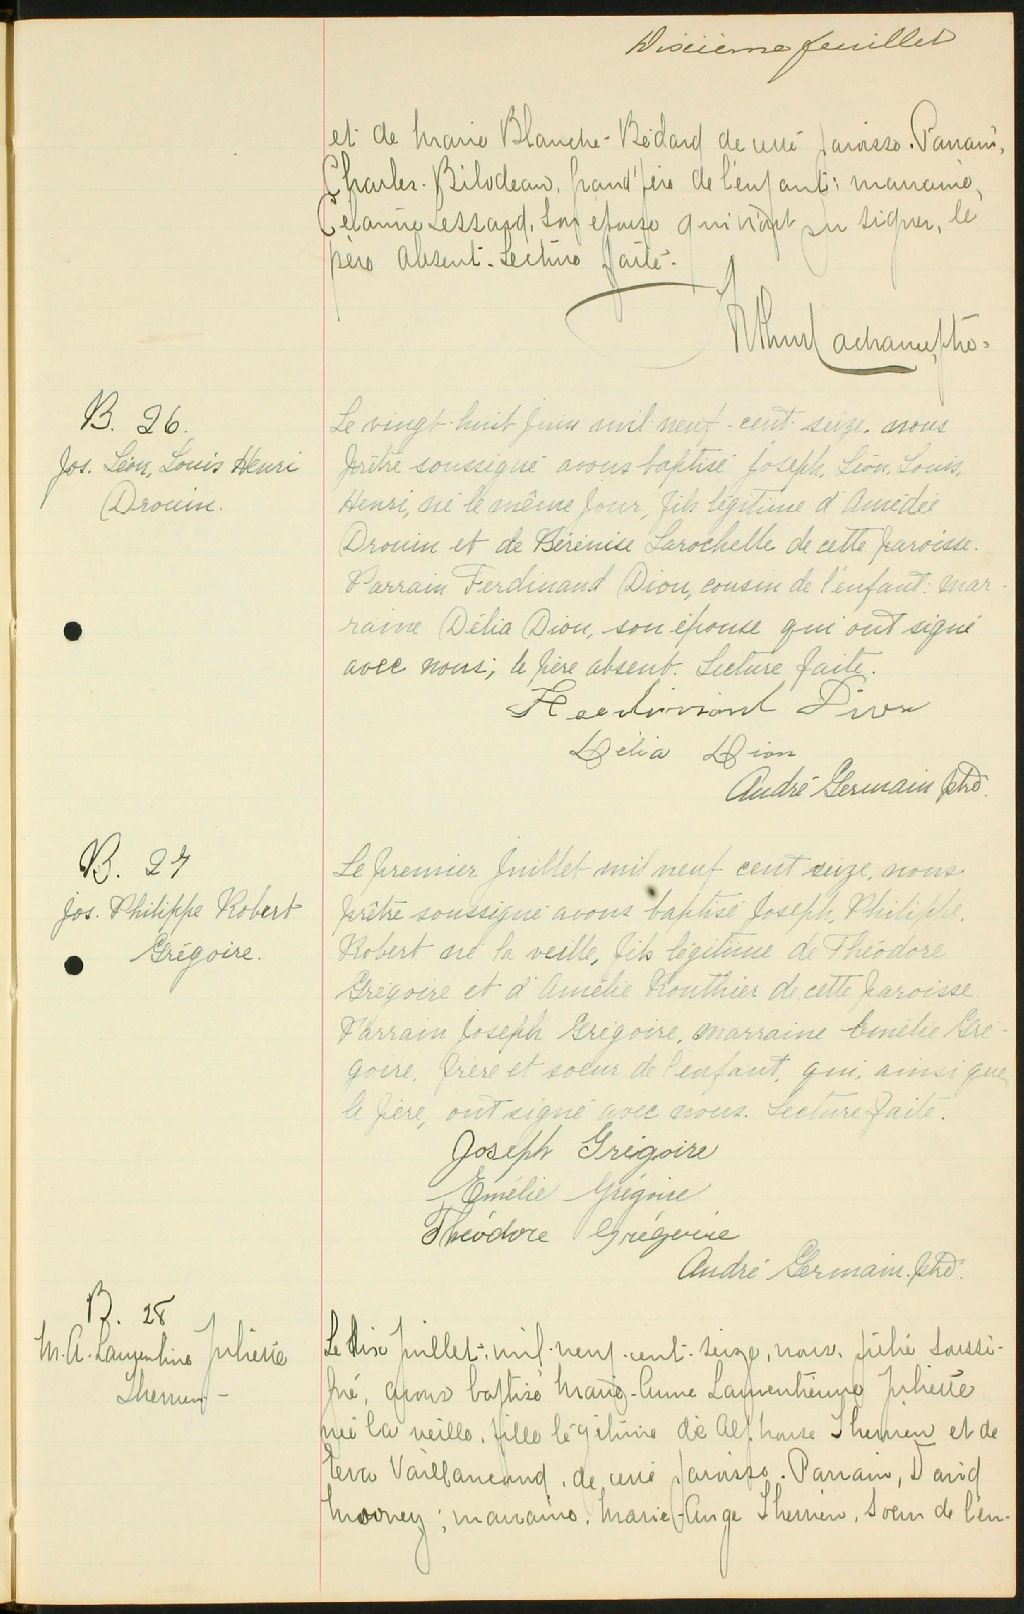 Dixième feuillet
et de Marie Blanche Bédard de cette paroisse. Parrain,
Charles Bilodeau, grand'père de l'enfant; marraine,
Célanire Lessard, son épouse qui n'ont pu signer, le
père absent. Lecture faite.
Lachance, ptre.
B. 26.
Jos. Léon, Louis Henri
Drouin.
Le vingt-huit Juin mil neuf-cent seize, nous
prêtre soussigné avons baptisé Joseph, Léon, Louis,
Henri, né le même jour, fils légitime d'Amédée
Drouin et de Bérénise Larochelle de cette paroisse.
Parrain Ferdinand Dion, cousin de l'enfant: mar-
raine Délia Dion, son épouse qui ont signé
avec nous; le père absent. Lecture faite.
Ferdinand Dion
Délia Dion
André Germain ptre.
B. 27
Jos. Philippe Robert
Grégoire.
Le premier Juillet mil neuf cent seize, nous
prêtre soussigné avons baptisé Joseph, Philippe,
Robert né la veille, fils légitime de Théodore
Grégoire et d'Amélie Routhier de cette paroisse.
Parrain Joseph Grégoire, marraine Emélie Gré-
goire, frère et soeur de l'enfant, qui, ainsi que
le père, ont signé avec nous. Lecture faite.
Joseph Grégoire
Emélie Grégoire
Théodore Grégoire
André Germain. ptre.
B. 28
M. A. Laurentine Juliette
Therrien
Le dix Juillet, mil-neuf-cent-seize, nous, prêtre soussi-
gné, avons baptisé Marie-Anne Laurentienne Juliette
née la veille, fille légitime de Alphonse Therrien et de
Vaillancourt, de cette paroisse. Parrain, David
Mooney; marraine, Marie-Ange Therrien, soeur de l'en-